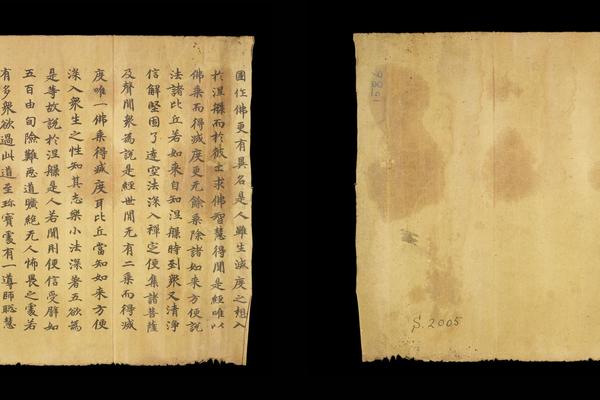 國作佛更有異名是人雖生滅度之想入
於涅槃而於彼土求佛智慧得聞是經唯以
佛乘而得滅度更无餘乘除諸如来方便說
法諸比丘若如来自知涅槃時到衆又清淨
信解堅固了達空法深入禪定便集諸菩薩
及聲聞衆為說是經世間无有二乘而得滅
度唯一佛乘得滅度耳比丘當知如来方便
深入衆生之性知其志樂小法深著五欲為
是等故說於涅槃是人若聞則便信受譬如
五百由旬險難惡道曠絶无人怖畏之處若
有多衆欲過此道至珎寳處有一導師聡慧
S. 2005